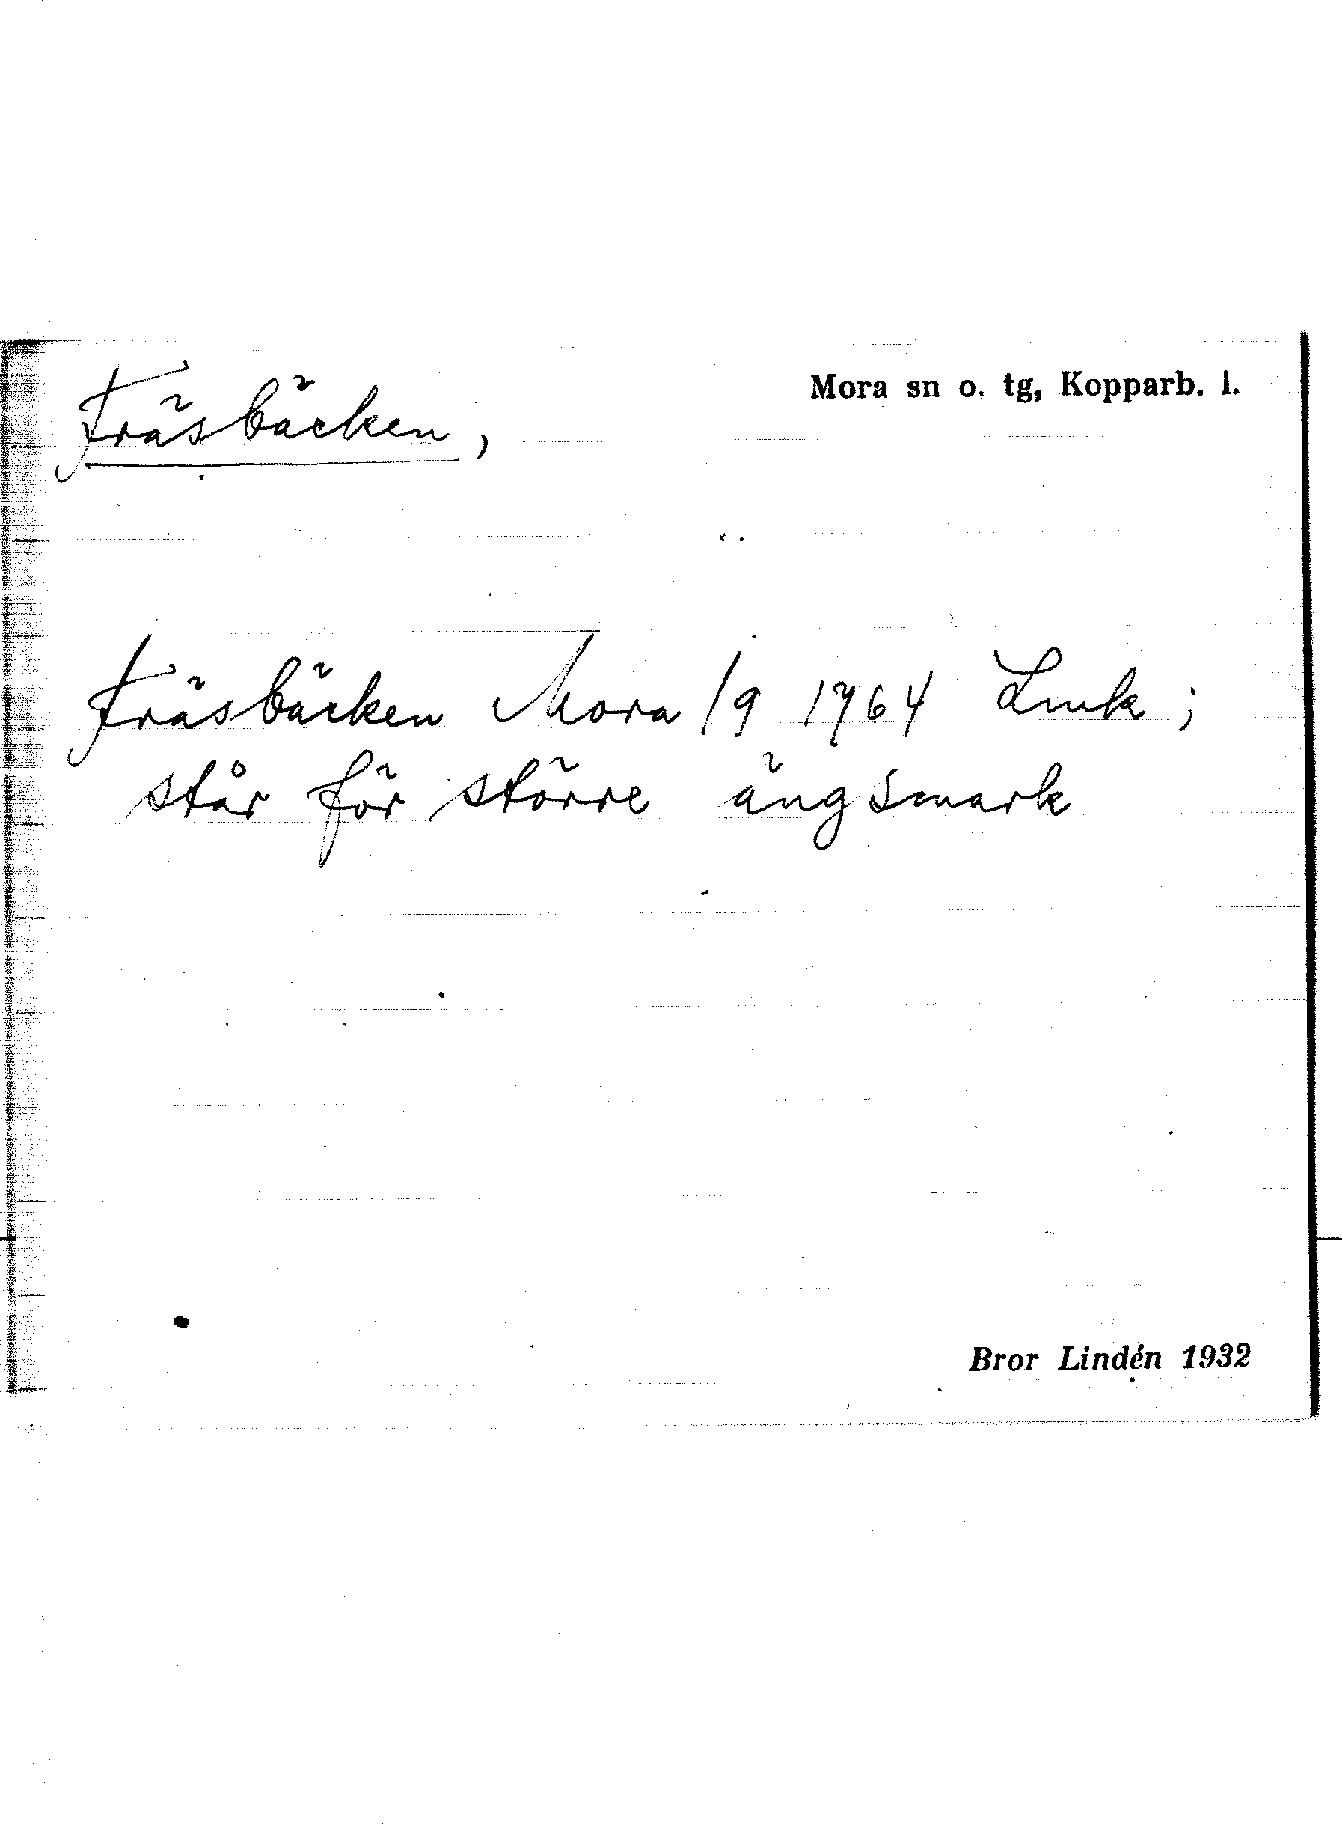 Fräsbäcken,
Mora sn o. tg, Kopparb. l.
Fräsbäcken Mora 19 1764 Lmk;
står för större ängsmark
Bror Lindén 1932